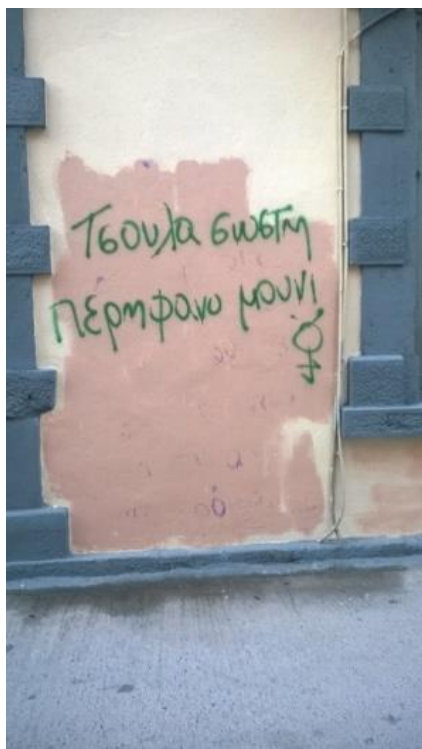 Τσουλα σωστη
περηφανο μουνι